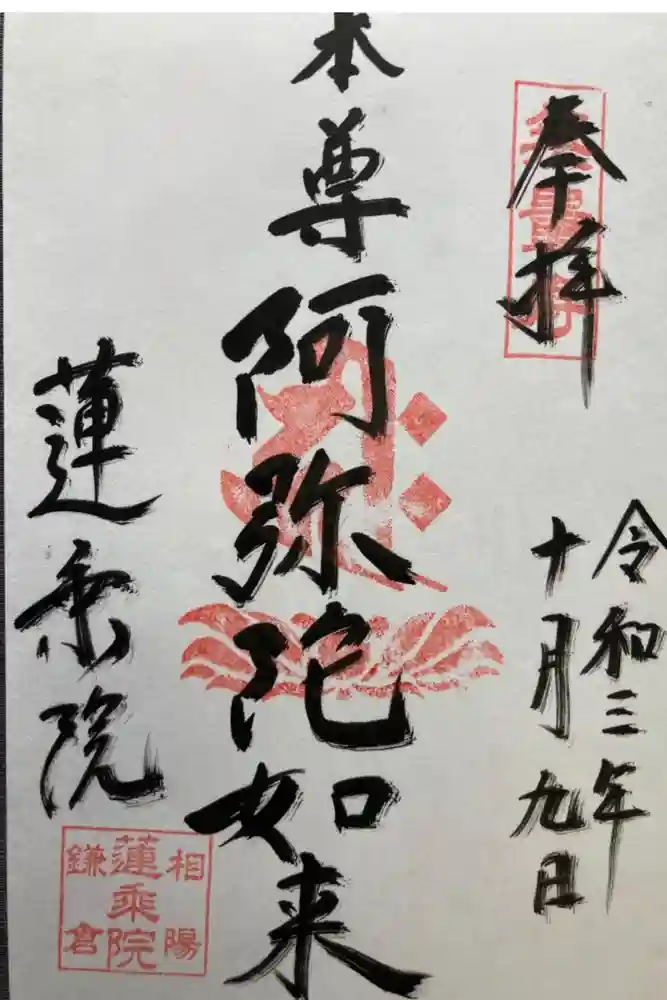 奉拝
無量寿
令和三年
十月九日
本尊阿弥陀如来
蓮乗院
相陽
蓮乗院
鎌倉